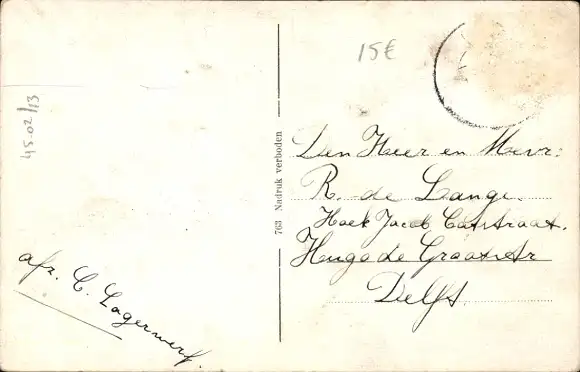 15€
45-02/13
763 Nadruk verboden
Den Heer en Mevr:
R. de Lange.
Hoek Jacob Catstraat.
Hugo de Grootstr
Delft.
afz. C. Lagerwerf.